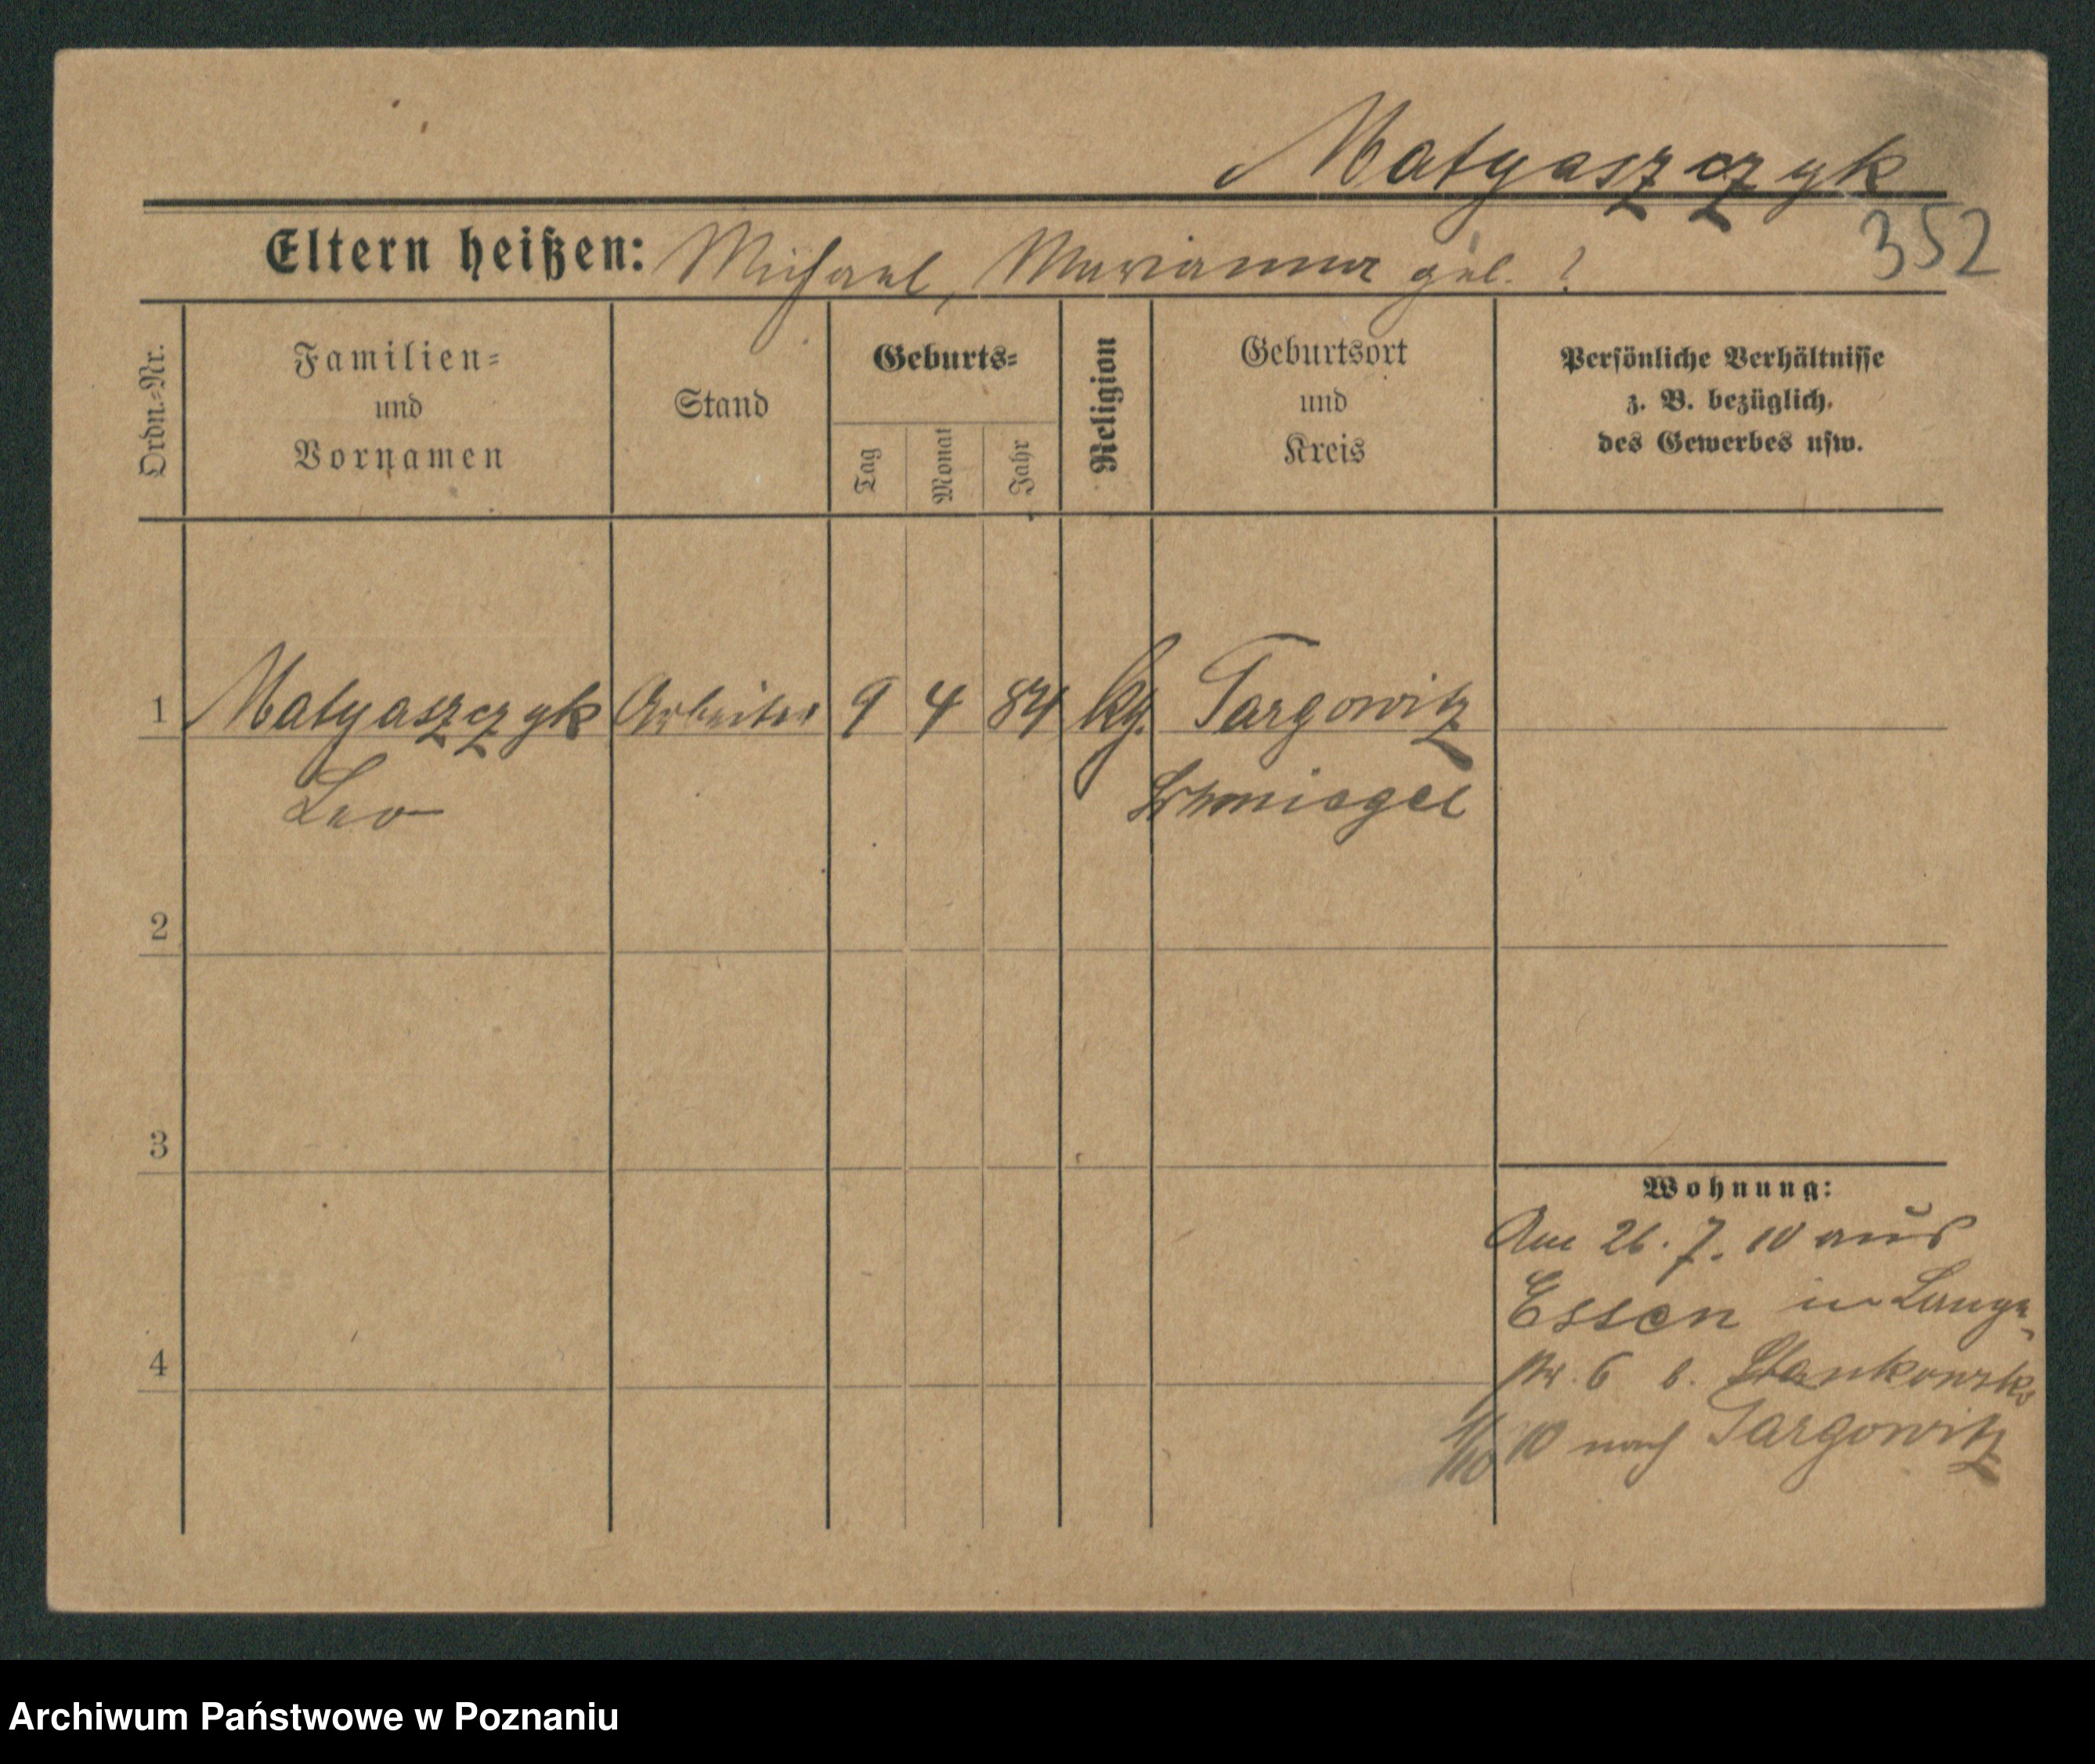 Matyaszczyk
352
Eltern heißen: Michael, Marianna geb. ?
Ordn.-Nr.
Familien-
und
Vornamen
Stand
Geburts-
Tag
Monat
Jahr
Religion
Geburtsort
und
Kreis
Persönliche Verhältnisse
z. B. bezüglich.
des Gewerbes usw.
1 Matyaszczyk Arbeiter 9 4 84 kg. Targowitz
Leo Schmiegel
2
3
4
Wohnung:
Am 26. 7. 10 aus
Essen in Lange-
str. 6 b. Stankowski
1/10 10 nach Targowitz
Archiwum Państwowe w Poznaniu